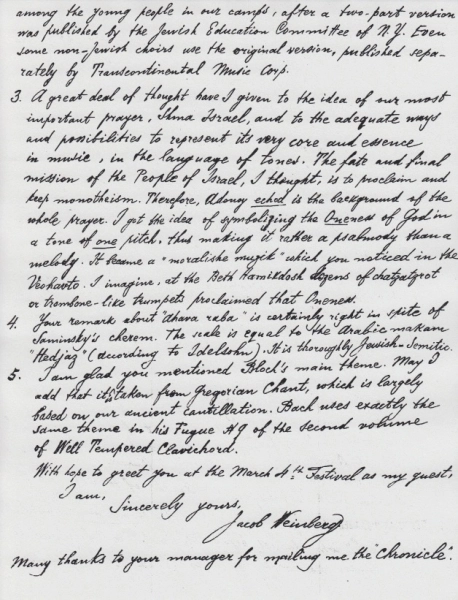 among the young people in our camps, after a two-part version
was published by the Jewish Education Committee of N.Y. Even
some non-Jewish choirs use the original version, published sepa-
rately by Transcontinental Music Corp.
3. A great deal of thought have I given to the idea of our most
important prayer, Shma Israel, and to the adequate ways
and possibilities to represent its very core and essence
in music, in the language of tones. The fate and final
mission of the People of Israel, I thought, is to proclaim and
keep monotheism. Therefore, Adonoy echod is the background of the
whole prayer. I got the idea of symbolizing the Oneness of God in
a tone of one pitch, thus making it rather a psalmody than a
melody. It became a "moralishe muzik" which you noticed in the
Veohavto. I imagine, at the Beth Hamikdosh dozens of chatzotzrot
or trombone-like trumpets proclaimed that Oneness.
4. Your remark about "Ahava raba" is certainly right in spite of
Saminsky's cherem. The scale is equal to the Arabic makam
"Hedjaz" (according to Idelsohn). It is thoroughly Jewish-Semitic.
5. I am glad you mentioned Bloch's main theme. May I
add that it is taken from Gregorian Chant, which is largely
based on our ancient cantillation. Bach uses exactly the
same theme in his Fugue #9 of the second volume
of Well Tempered Clavichord.
With hope to greet you at the March 4th Festival as my guest,
I am,
Sincerely yours,
Jacob Weinberg
Many thanks to your manager for mailing me the "Chronicle".